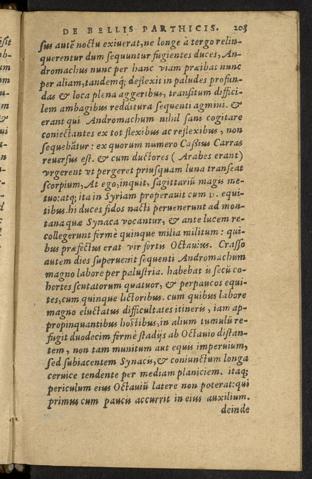 DE BELLIS PARTHICIS. 205
sus autē noctu exiuerat, ne longe à tergo relin-
querentur dum sequuntur fugientes duces, An-
dromachus nunc per hanc viam præibat nunc
per aliam, tandemq; deflexit in paludes profun-
das & loca plena aggeribus, transitum difficil-
lem ambagibus redditura sequenti agmini. &
erant qui Andromachum nihil sani cogitare
coniectantes ex tot flexibus ac reflexibus, non
sequebātur: ex quorum numero Cassius Carras
reuersus est. & cum ductores (Arabes erant)
vrgerent vt pergeret priusquam luna transeat
scorpium, At ego, inquit, sagittariū magis me-
tuo: atq; ita in Syriam properauit cum D. equi-
tibus. hi duces fidos nacti peruenerunt ad mon-
tana quæ Synaca vocantur, & ante lucem re-
collegerunt firmè quinque milia militum: qui-
bus præfectus erat vir fortis Octauius. Crasso
autem dies superuenit sequenti Andromachum
magno labore per palustria. habebat is secū co-
hortes scutatorum quatuor, & perpaucos equi-
tes, cum quinque lictoribus. cum quibus labore
magno eluctatus difficultates itineris, iam ap-
propinquantibus hostibus, in alium tumulū re-
fugit duodecim firmè stadijs ab Octauio distan-
tem, non tam munitum aut equis imperuium,
sed subiacentem Synacis, & coniunctum longa
ceruice tendente per mediam planiciem. itaq;
periculum eius Octauiū latere non poterat: qui
primus cum paucis accurrit in eius auxilium.
deinde